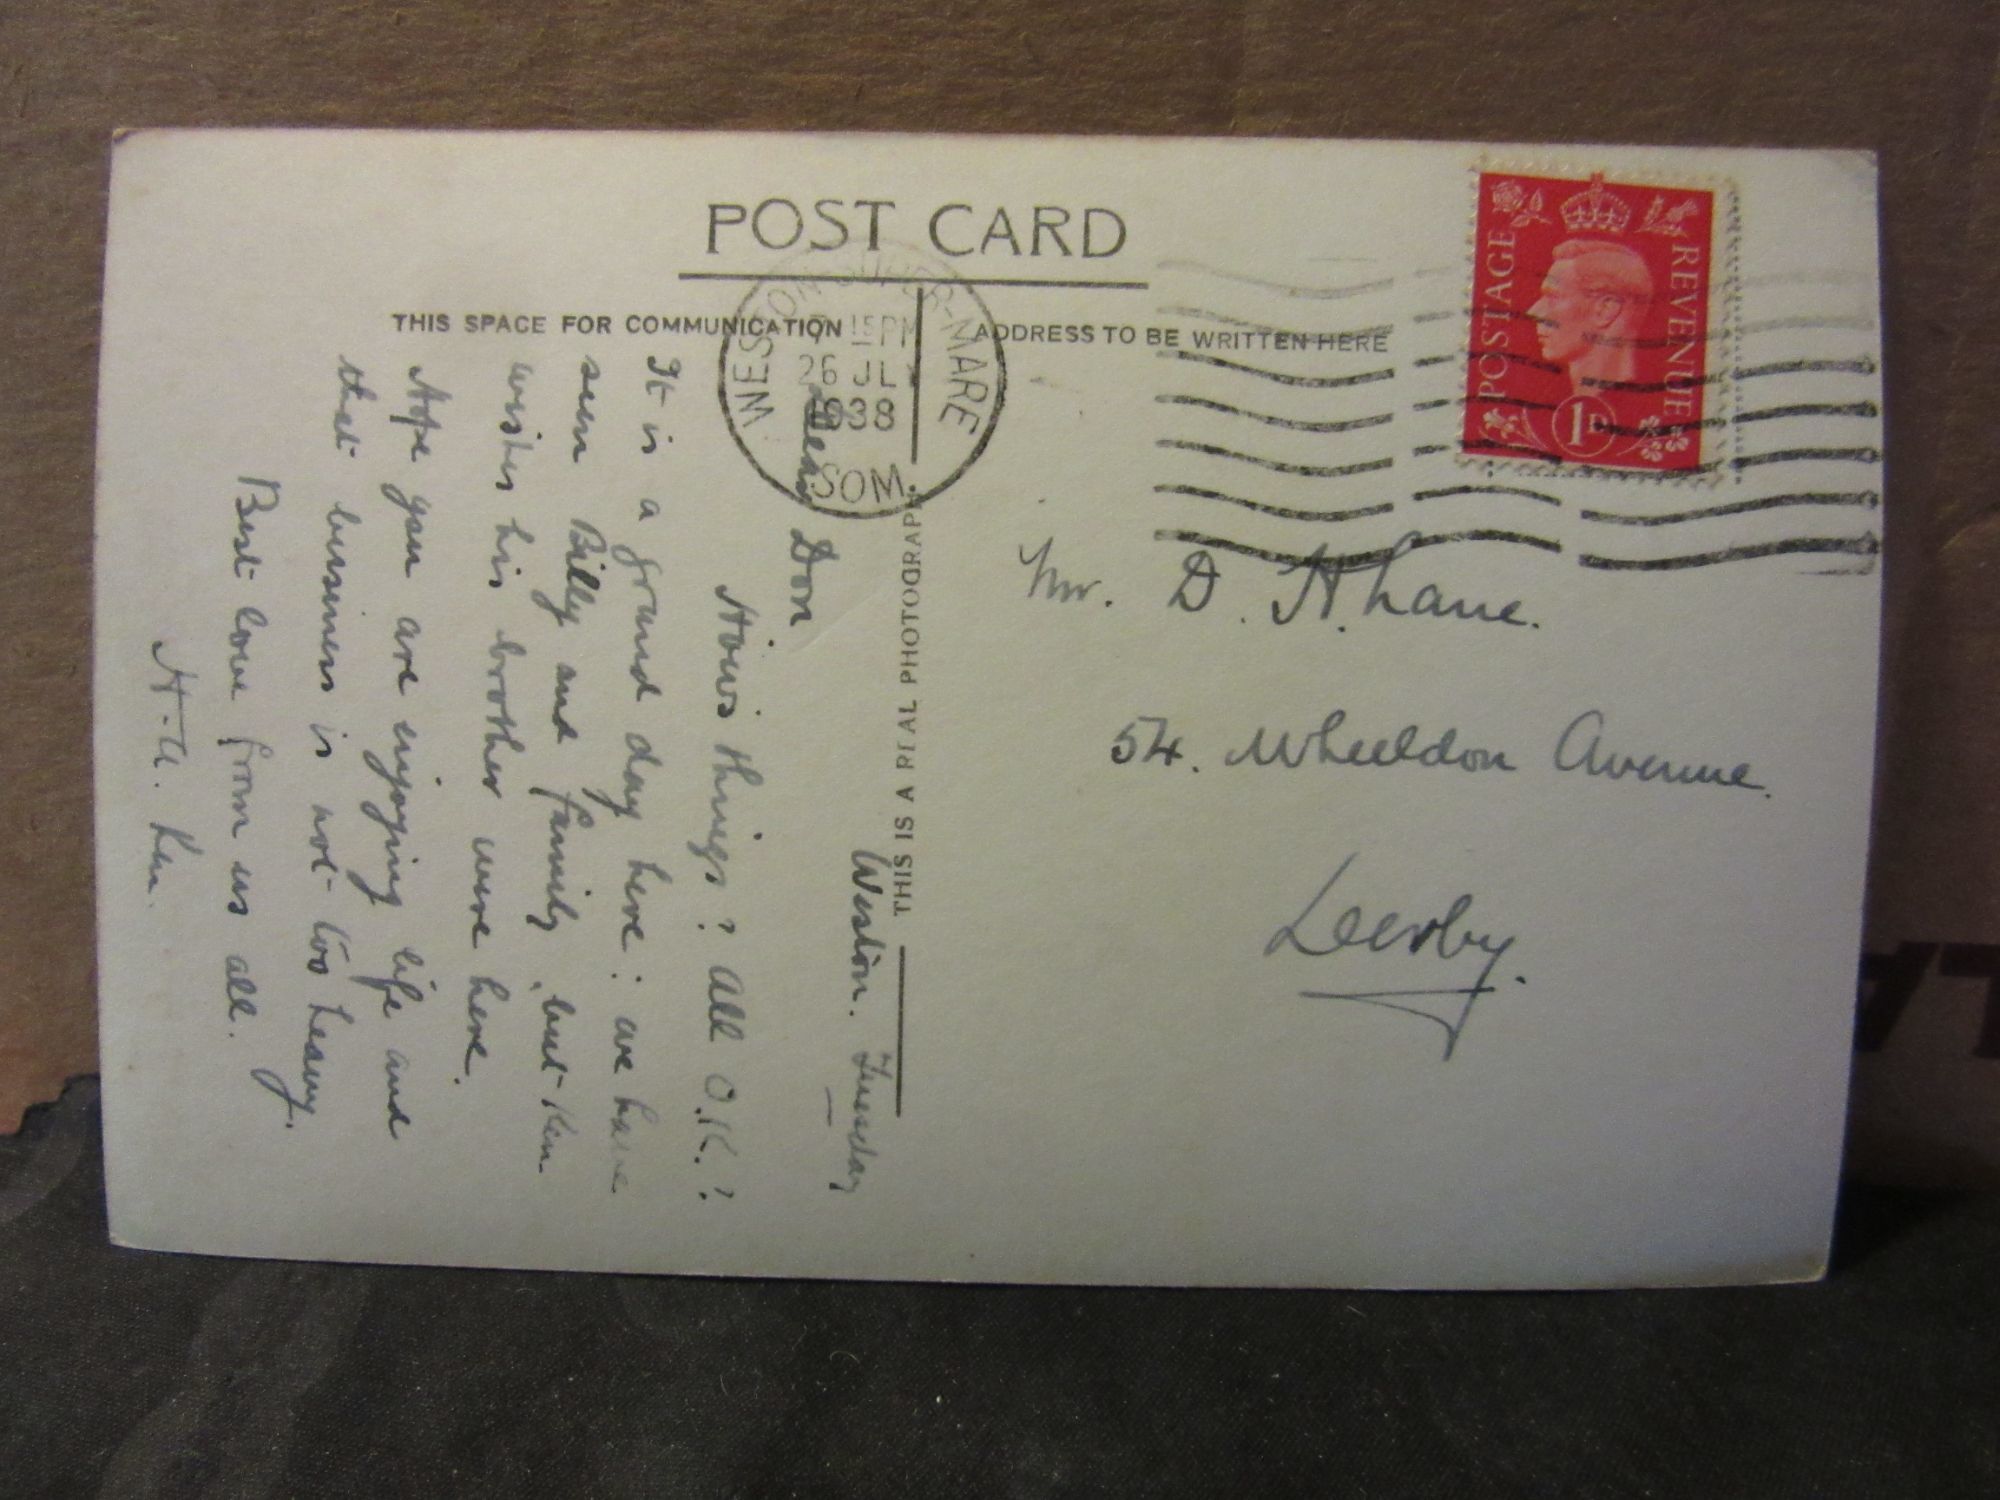 POST CARD
THIS SPACE FOR COMMUNICATION
ADDRESS TO BE WRITTEN HERE
THIS IS A REAL PHOTOGRAPH.
POSTAGE
REVENUE
1D
WESTON-SUPER-MARE
15 PM
26 JL
1938
SOM.
Weston. Tuesday
Dear Don
How's things? All O.K.?
It is a grand day here: we have
seen Billy and family, but Ken
wishes his brother were here.
Hope you are enjoying life and
that business is not too heavy.
Best love from us all.
Ken.
Mr. D. H. Lane.
54. Wheeldon Avenue.
Derby.